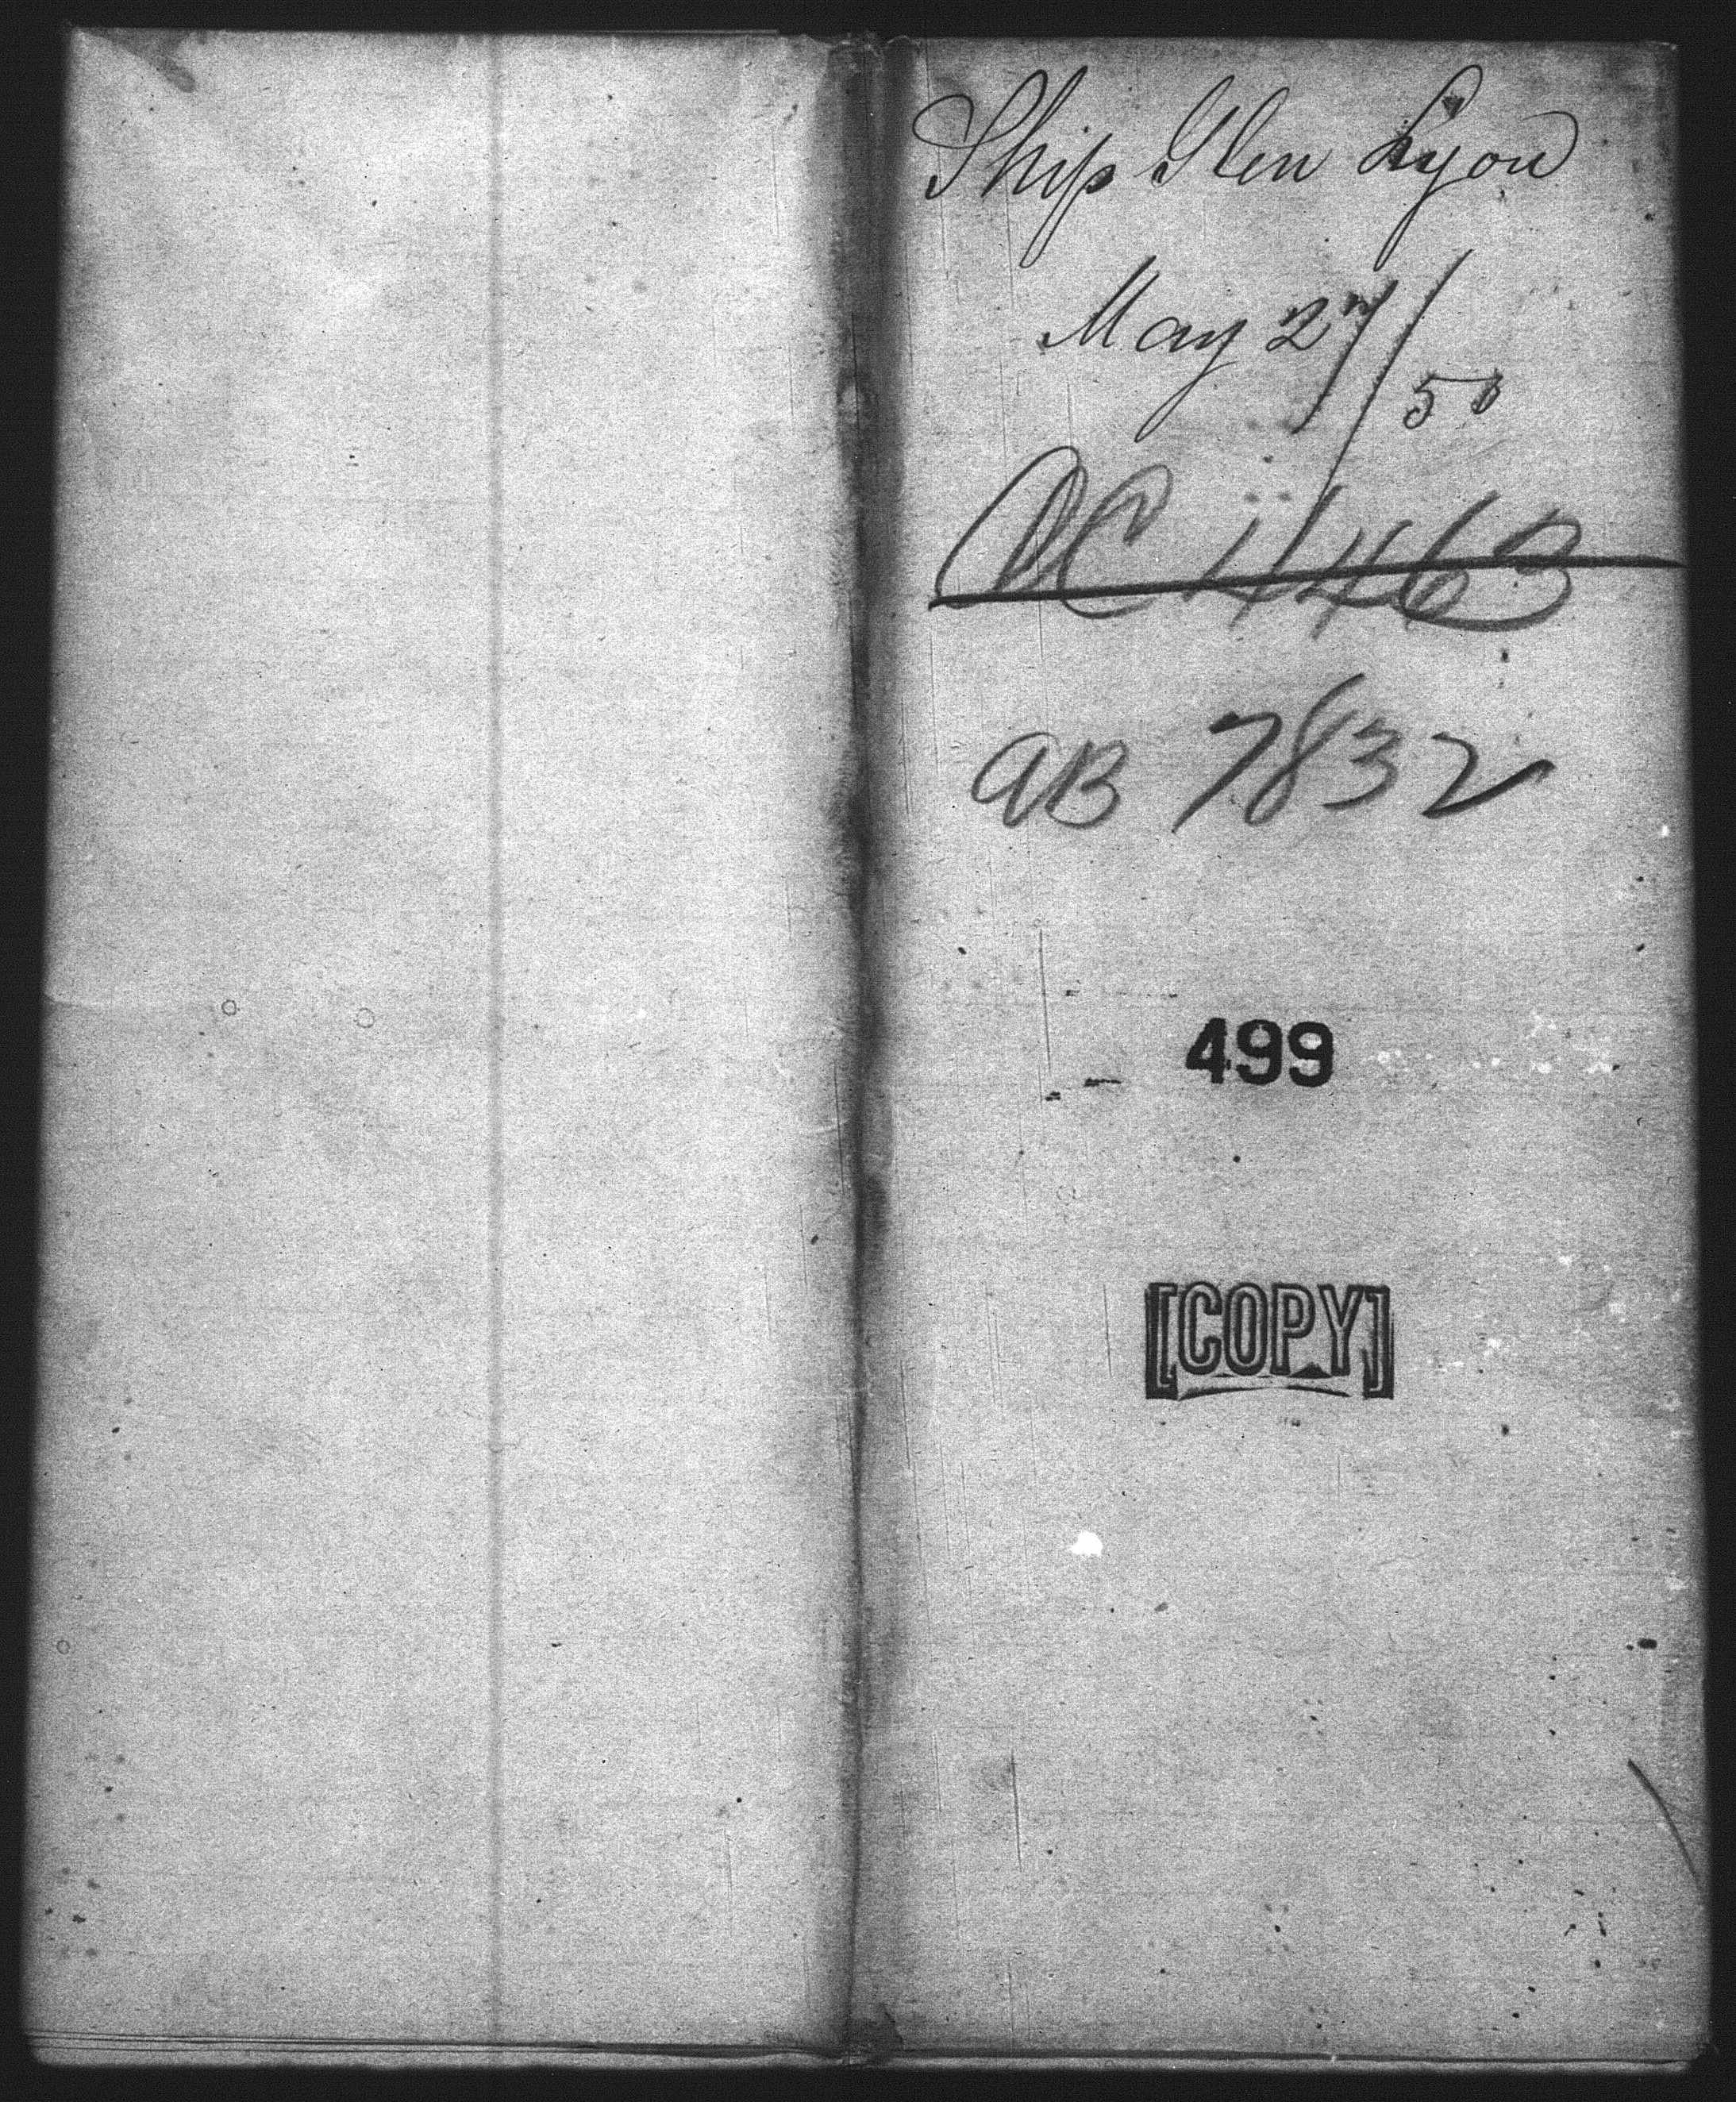 Ship Glen Lyon
May 27/50
AC 4463
AB 7832
499
[COPY]